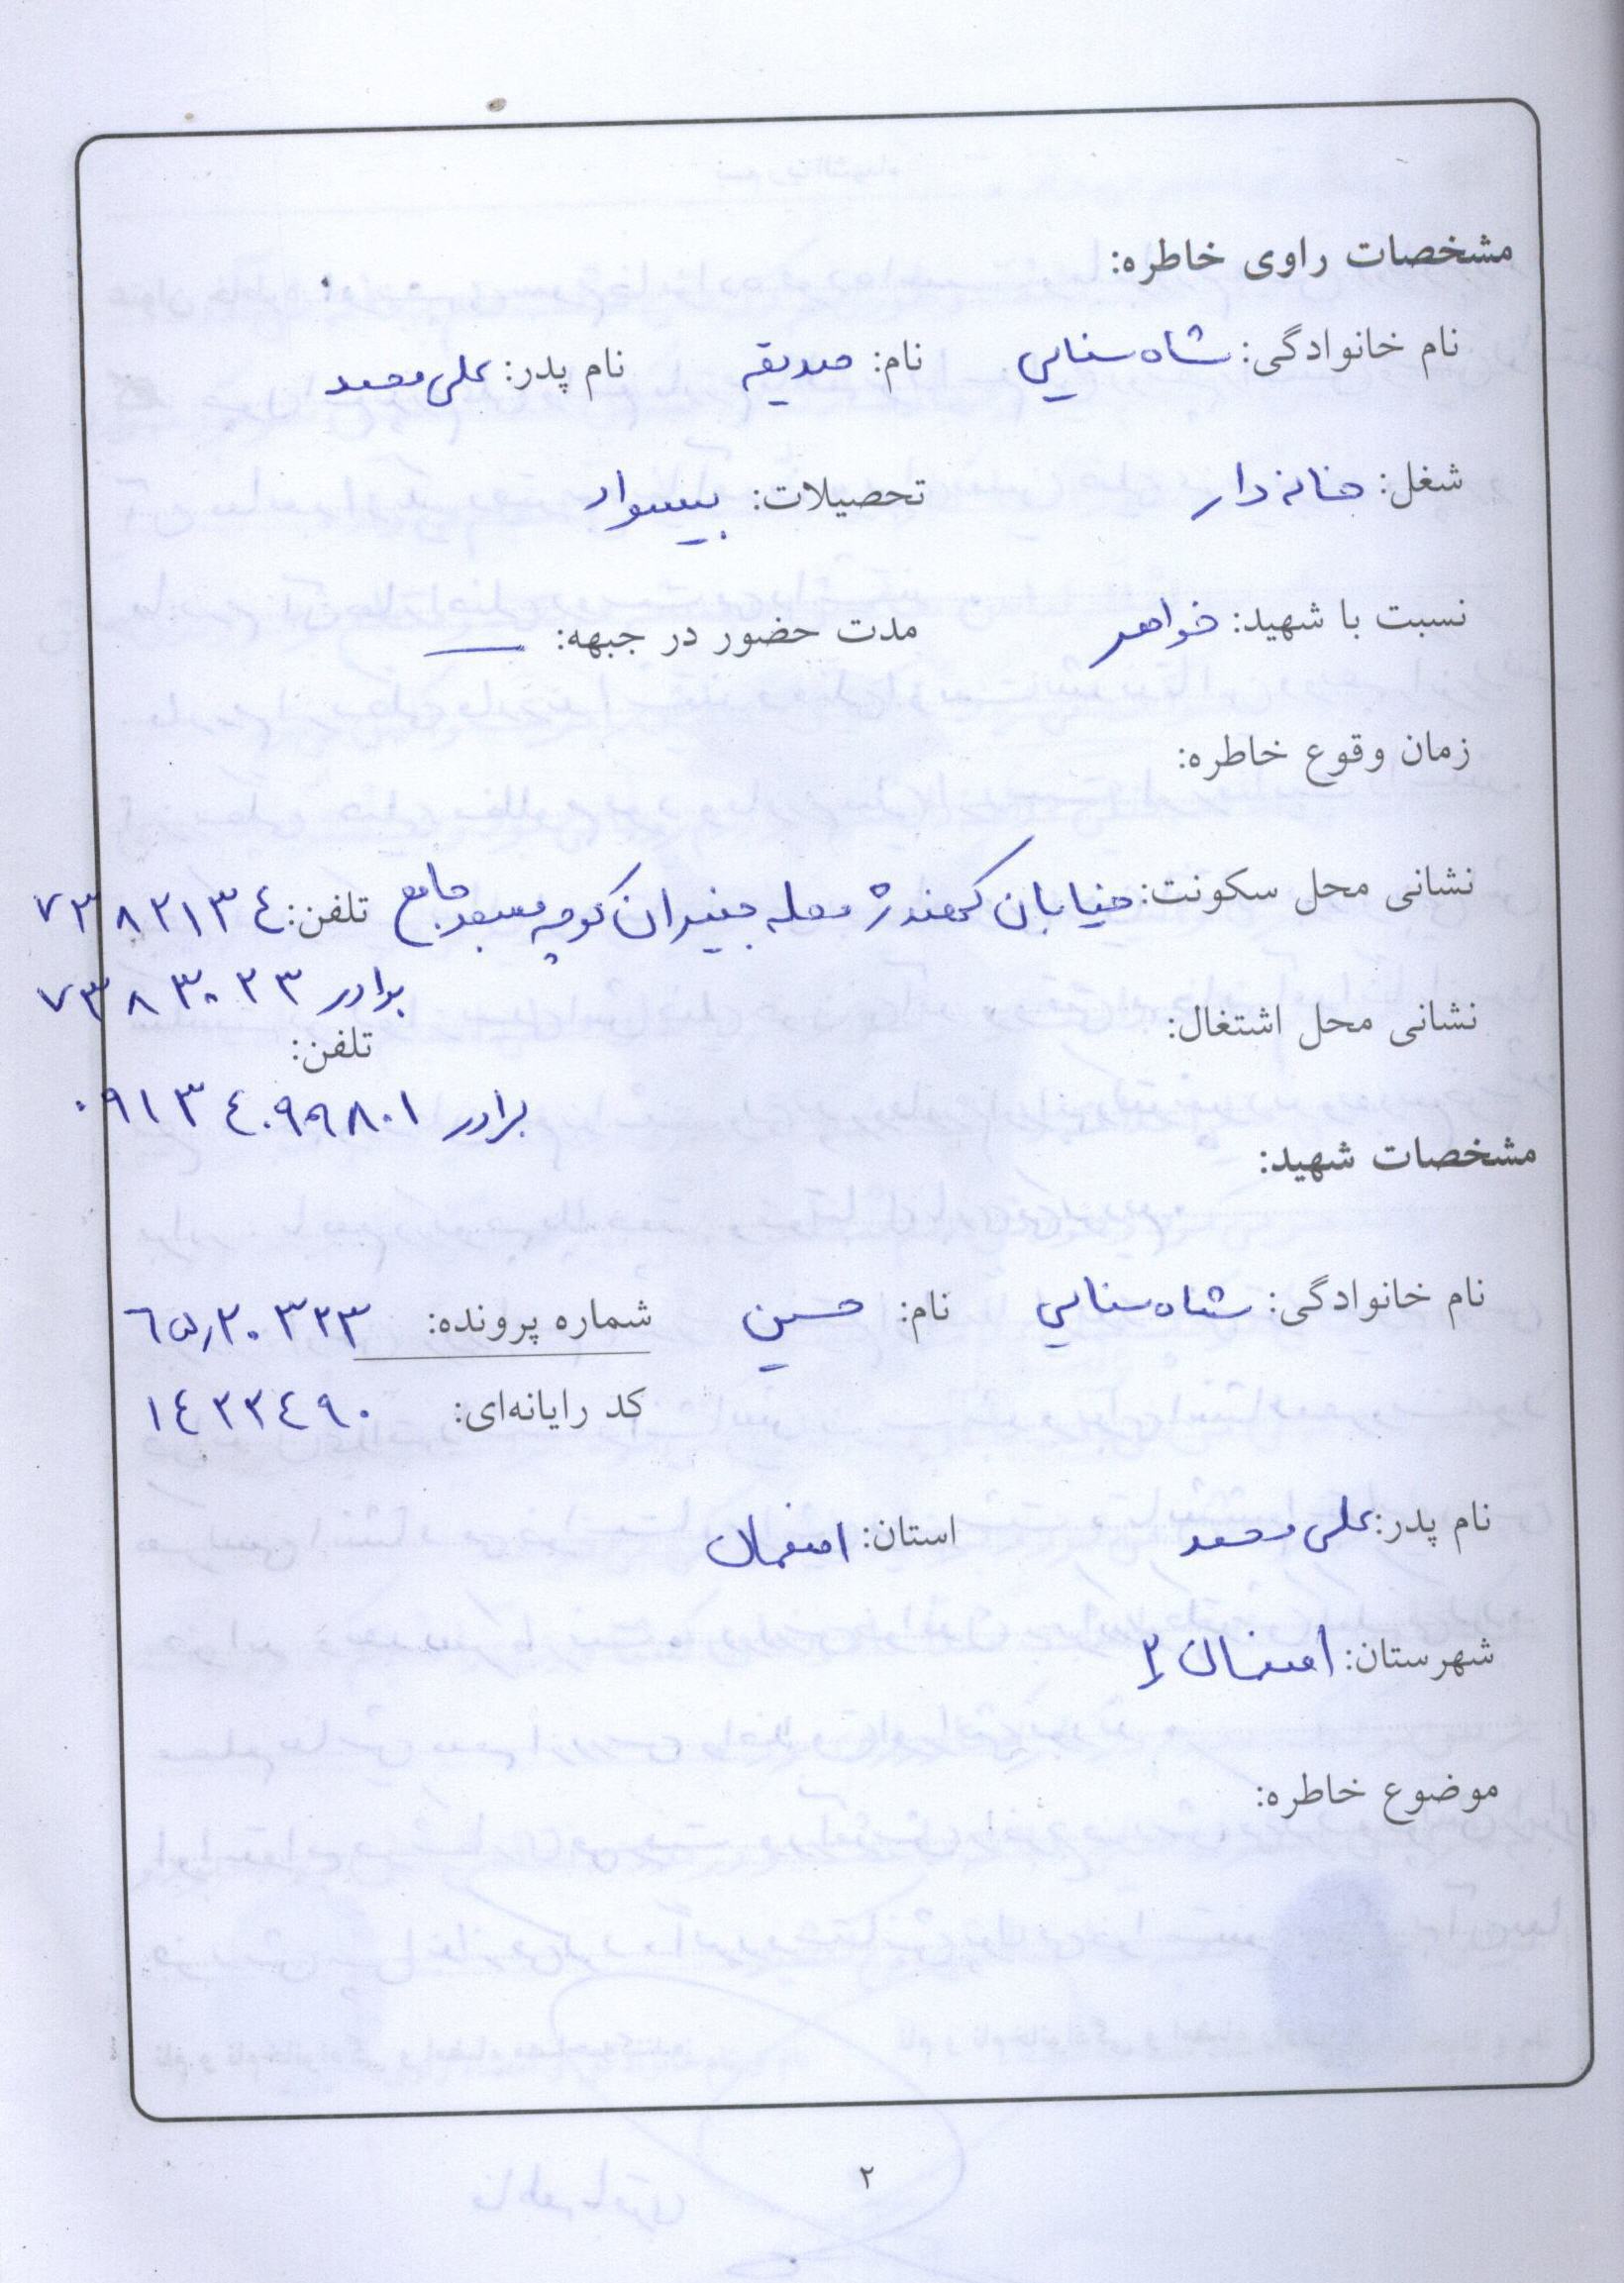 مشخصات راوی خاطره:
نام خانوادگی: شاه سنایی نام: صدیقه نام پدر: علی محمد
شغل: خانه دار تحصیلات: بیسواد
نسبت با شهید: خواهر مدت حضور در جبهه: —
زمان وقوع خاطره:
نشانی محل سکونت: خیابان کهندژ محله جنیران کوچه مسجد جامع تلفن: ۷۳۸۲۱۳۴
برادر ۷۳۸۳۰۲۳
نشانی محل اشتغال: تلفن:
برادر ۰۹۱۳۴۰۹۹۸۰۱
مشخصات شهید:
نام خانوادگی: شاه سنایی نام: حسین شماره پرونده: ۶۵٫۲۰۳۲۳
کد رایانه‌ای: ۱۴۲۲۴۹۰
نام پدر: علی محمد استان: اصفهان
شهرستان: اصفهان ۲
موضوع خاطره:
۲